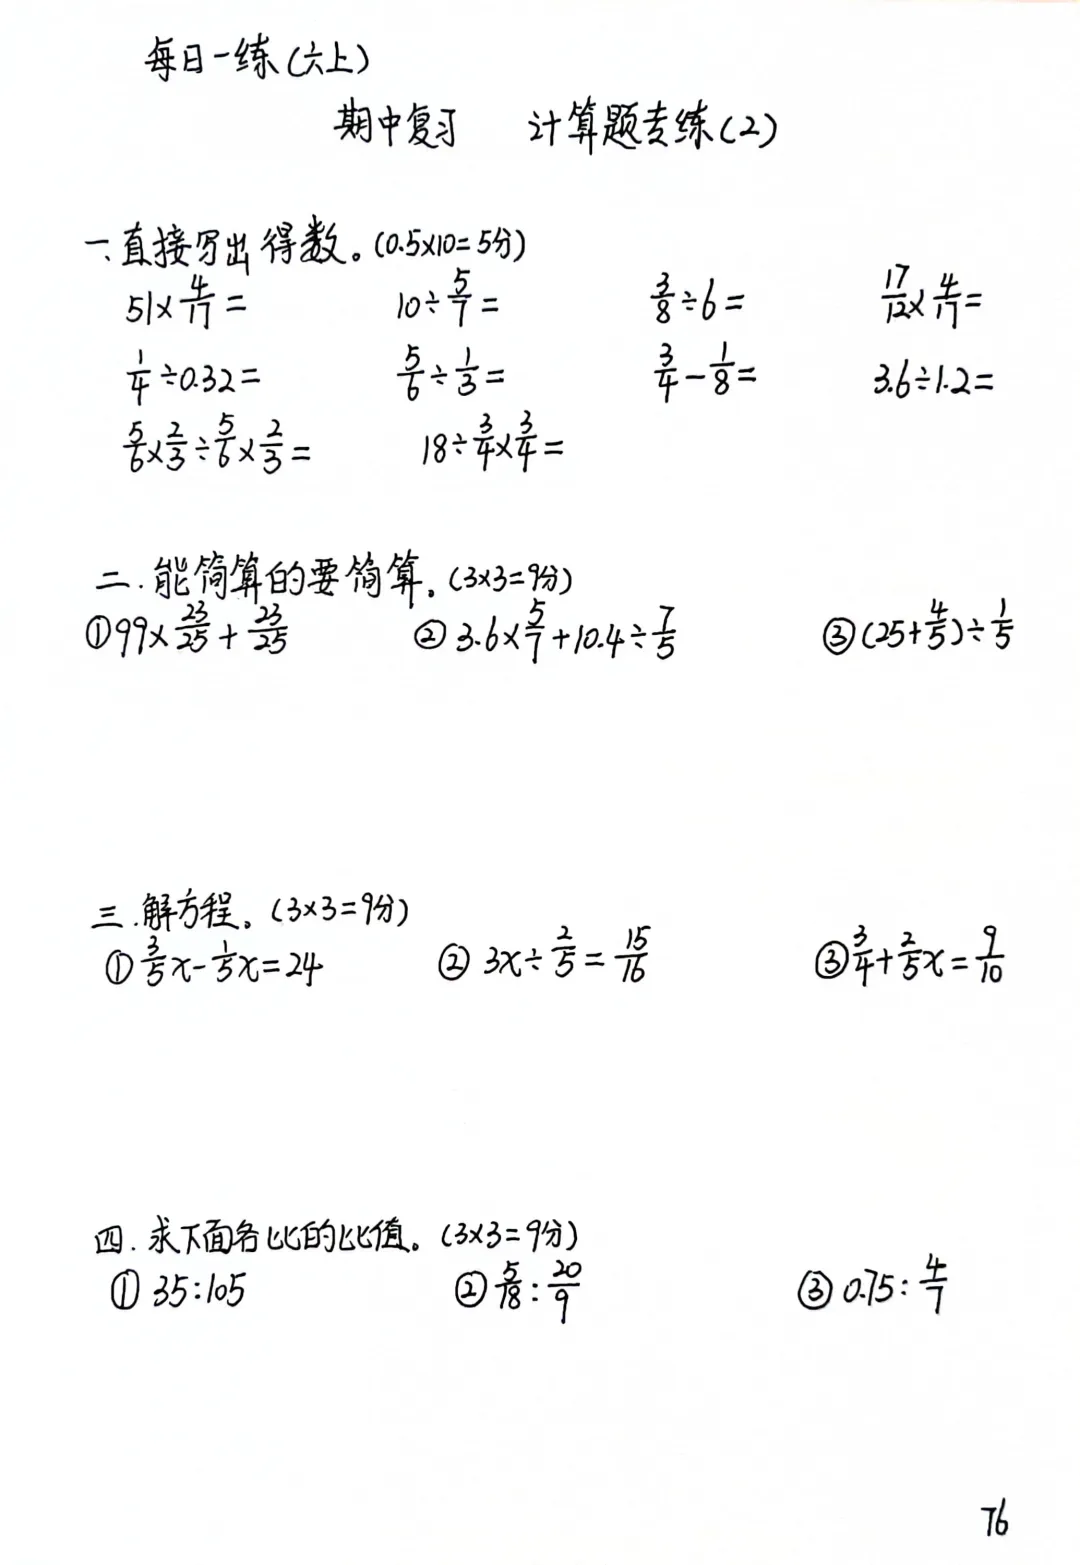 每日一练(六上)
期中复习 计算题专练(2)
一、直接写出得数。(0.5×10=5分)
51×4/17= 10÷5/7= 3/8÷6= 17/12×4/17=
1/4÷0.32= 5/6÷1/3= 3/4-1/8= 3.6÷1.2=
5/6×2/3÷5/6×2/3= 18÷3/4×3/4=
二.能简算的要简算。(3×3=9分)
①99×23/25+23/25 ②3.6×5/7+10.4÷7/5 ③(25+4/5)÷1/5
三.解方程。(3×3=9分)
①3/5x-1/5x=24 ②3x÷2/5=15/16 ③3/4+2/5x=9/10
四.求下面各比的比值。(3×3=9分)
①35:105 ②5/18:20/9 ③0.75:4/7
76